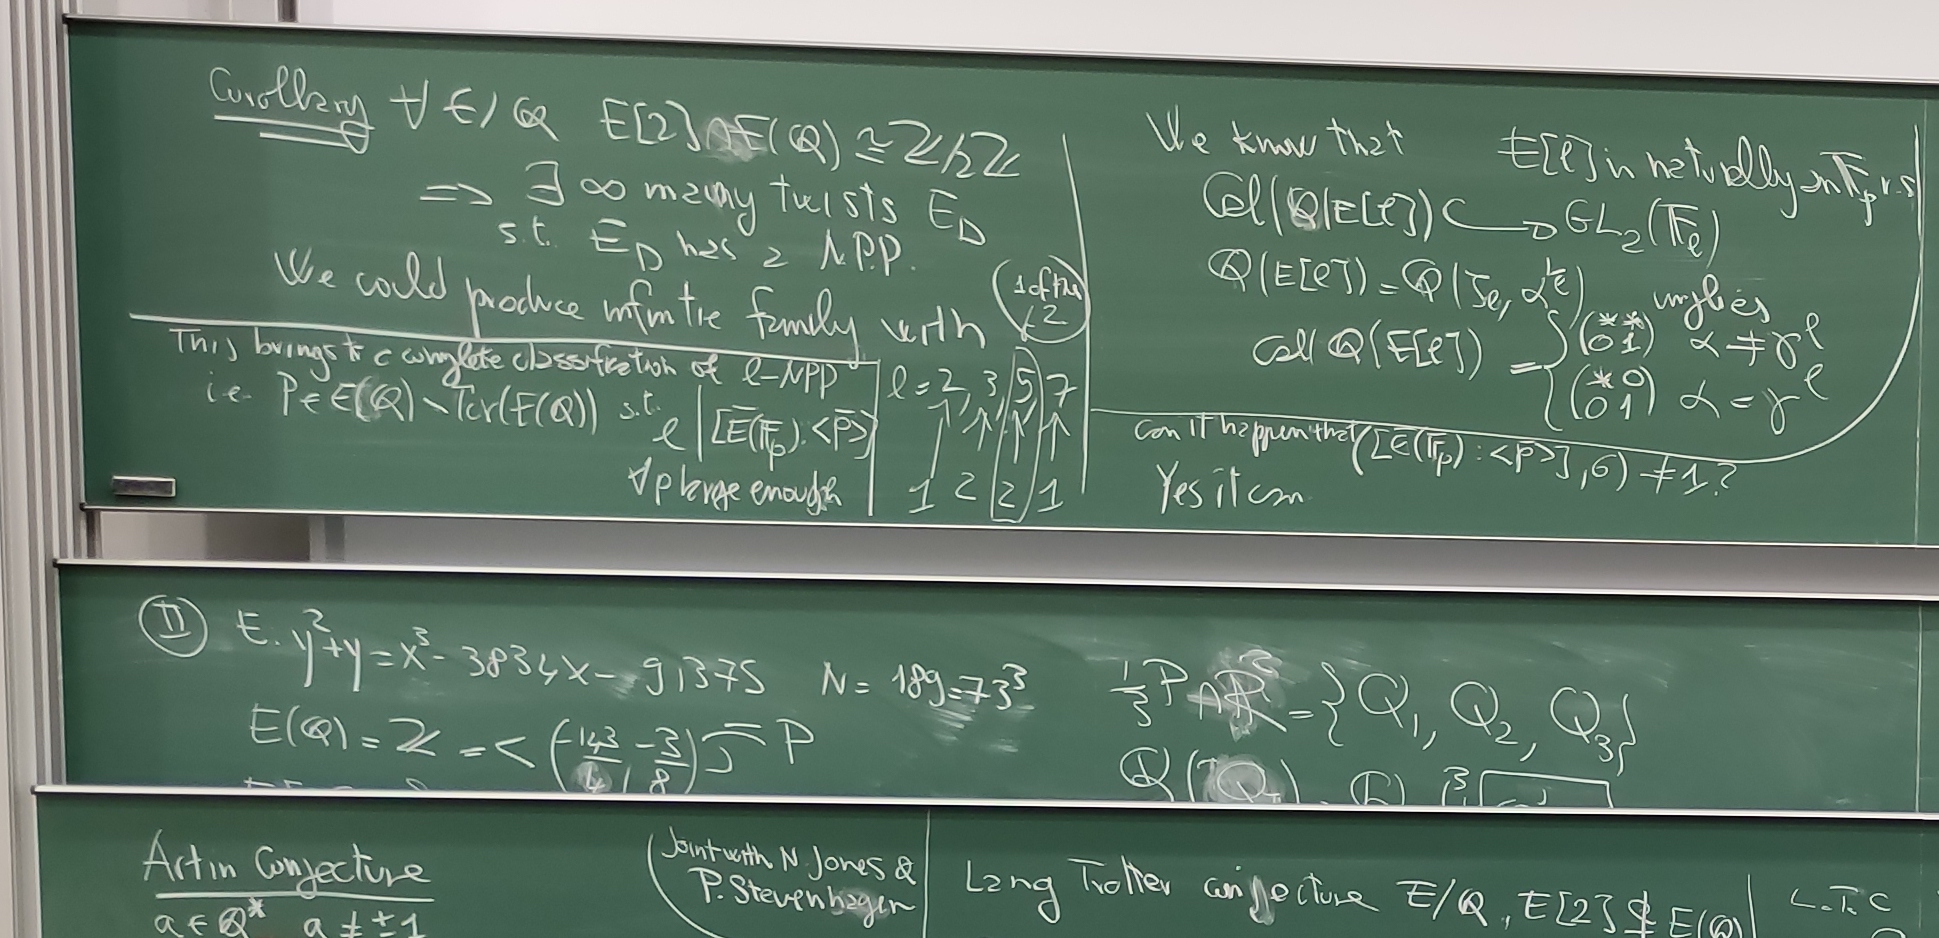 Corollary ∀ E/Q E[2]∩E(Q) ≅ Z/2Z
=> ∃ ∞ many twists E_D
s.t. E_D has a N.P.P.
We could produce infinite family with
1 of the
2
This brings to a complete classification of ℓ-NPP
i.e. P∈E(Q)∖Tor(E(Q)) s.t.
ℓ | [Ē(F_p):<P̄>]
∀p large enough
ℓ=2,3,5,7
1 2 2 1
We know that
E[ℓ] is naturally an F_p v.s
Gal(Q(E[ℓ]) ↪ GL_2(F_ℓ)
Q(E[ℓ]) = Q(ζ_ℓ, α^{1/ℓ}) implies
Gal Q(E[ℓ]) = { (* * 0 1) α ≠ γ^ℓ
(* 0 0 1) α = γ^ℓ
can it happen that ([Ē(F_p):<P̄>],6) ≠ 1?
Yes it can
II E. y²+y = x³ - 3834x - 91375 N = 189=73³
E(Q) = Z = < (-143/4, -3/8) P
1/3 P ∩ R² = {Q_1, Q_2, Q_3}
Artin Conjecture
a ∈ Q* a ≠ ±1
Joint with N. Jones &
P. Stevenhagen
Lang Trotter conjecture E/Q, E[2] ⊄ E(Q)
L.T.C